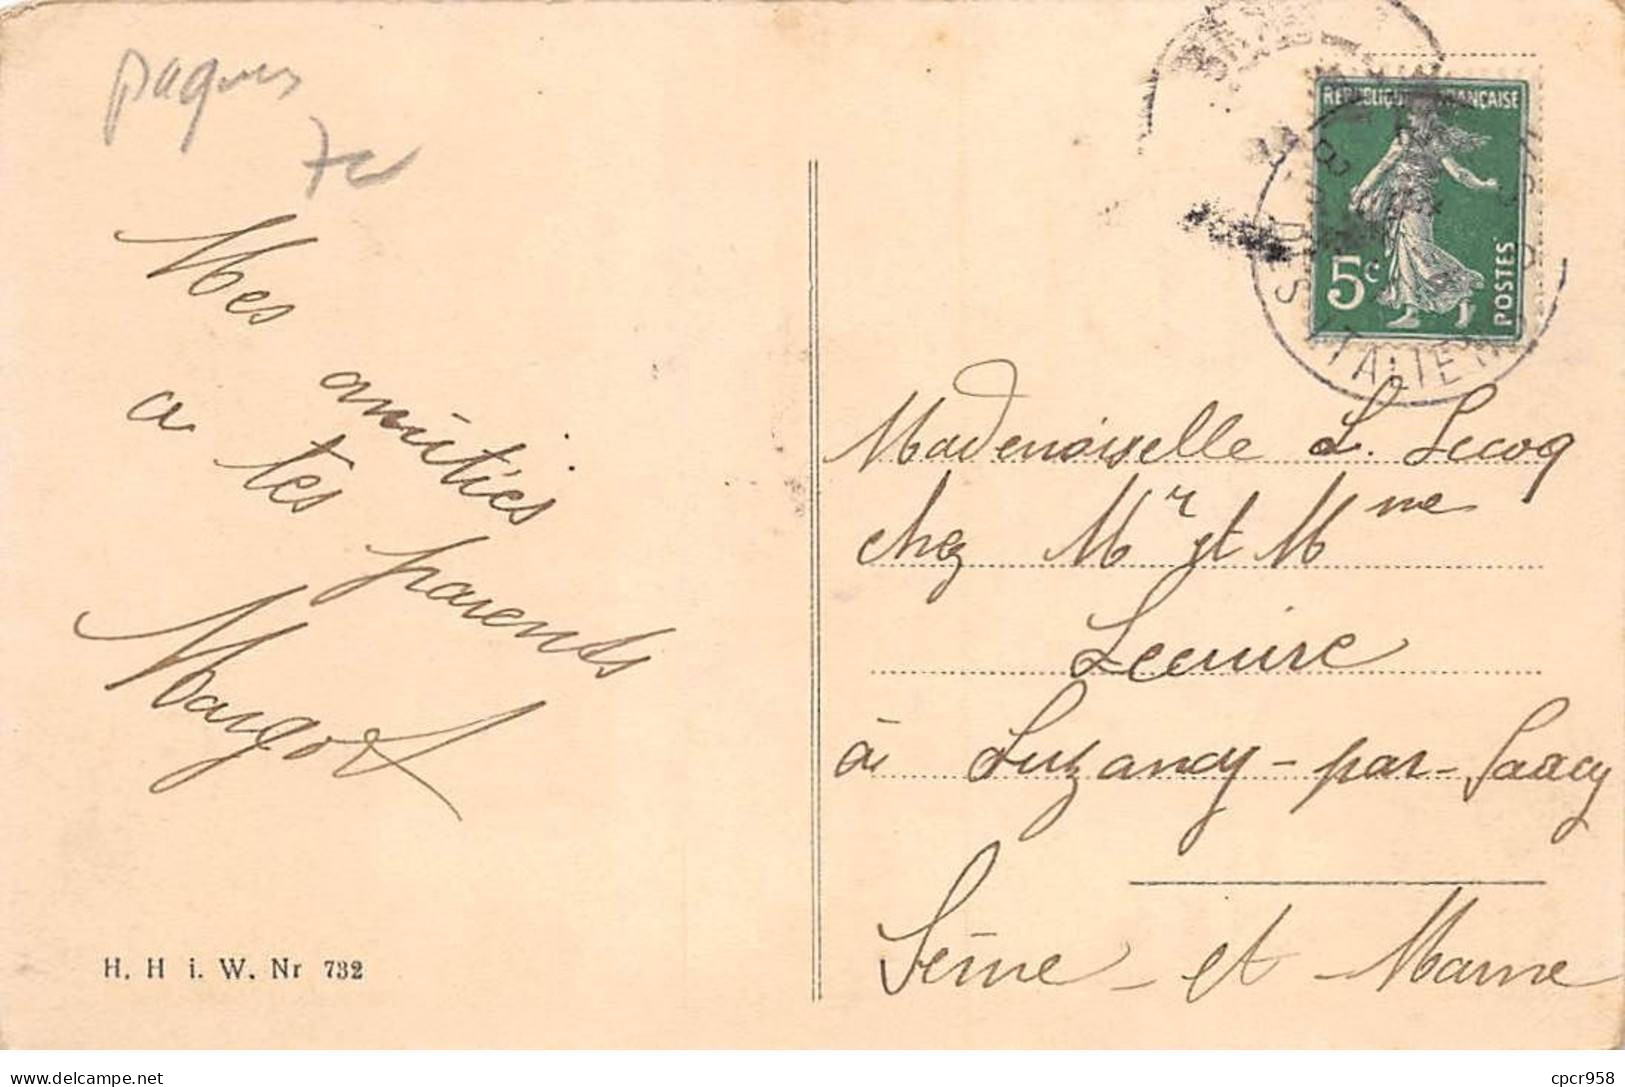 paques
Mes amitiés
a tes parents
Margot
H. H i. W. Nr 732
REPUBLIQUE FRANÇAISE
5c
POSTES
Mademoiselle L. Lecoq
chez Mr et Mme
Lecuire
à Luzancy-par-Saacy
Seine-et-Marne
delcampe.net
cpcr958